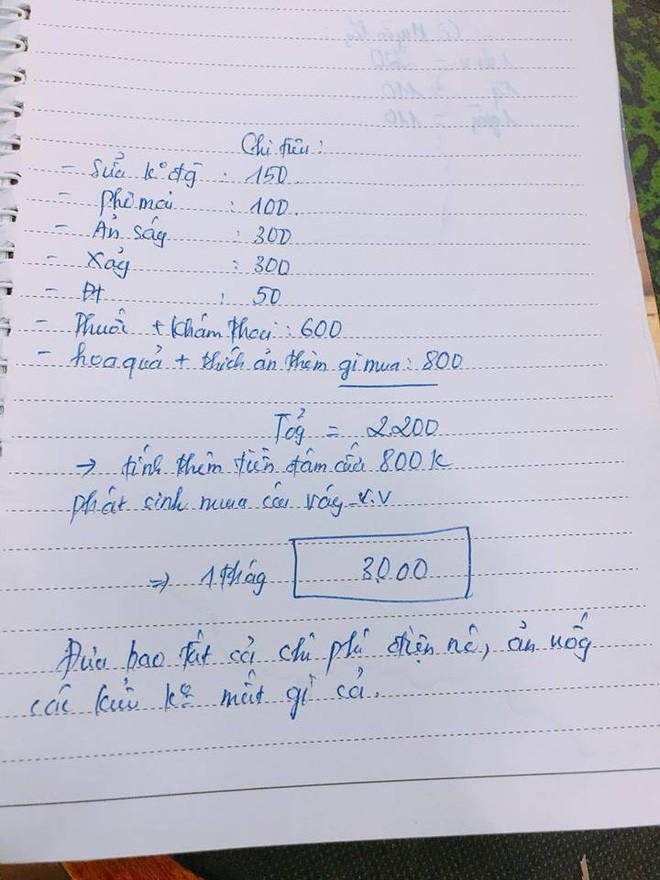 Chi tiêu:
- Sữa kº đg : 150
- phô mai : 100.
- Ăn ság : 300
- Xăg : 300
- Đt : 50
- Thuốc + khám thai : 600
- hoa quả + thích ăn thêm gì mua : 800
Tổg = 2.200
→ tính thêm tiền đám cưới 800 k
phát sinh mua cái váy v.v
⇒ 1 thág 3000
bao tất cả chi phí điện nc, ăn uống
các kiểu kº mất gì cả.